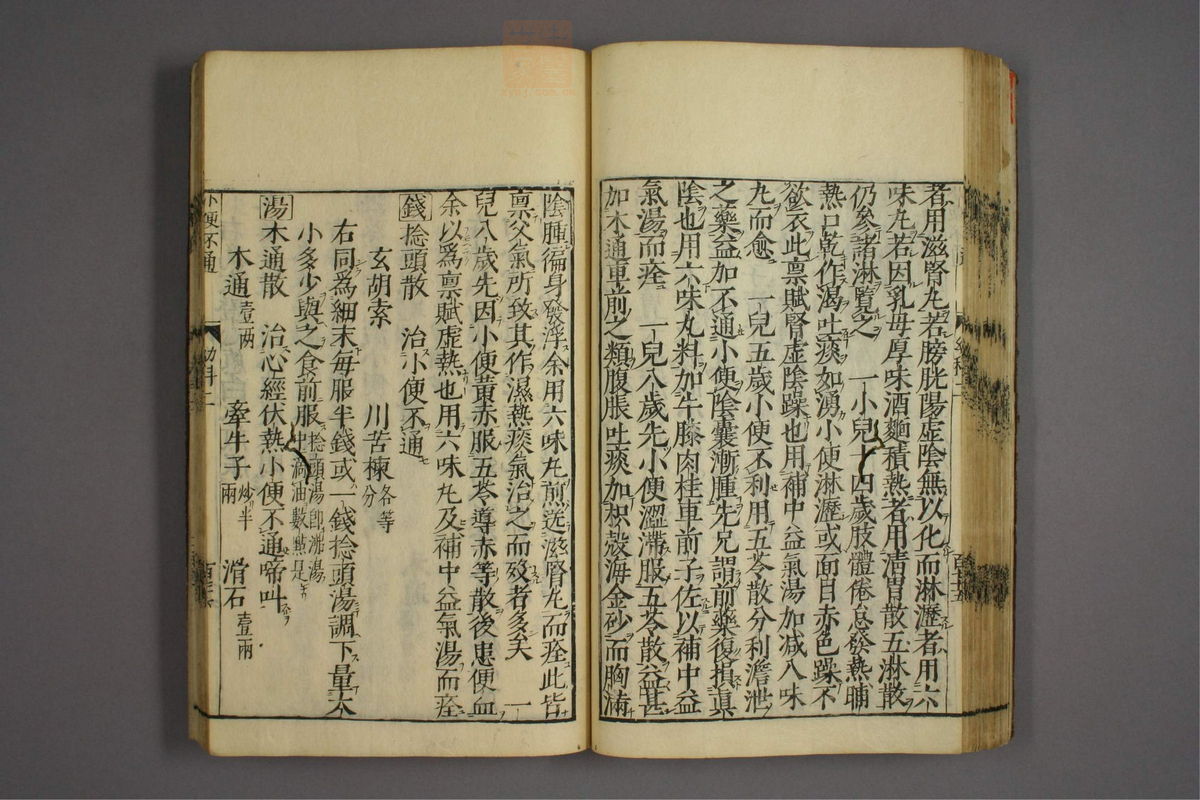 者用滋腎丸若膀胱陽虛陰無以化而淋瀝者用六
味丸若因乳母厚味酒麵積熱者用清胃散五淋散
仍參諸淋覽之　一小兒十四歲肢體倦怠發熱晡
熱口乾作渴吐痰如湧小便淋瀝或面目赤色躁不
欲衣此禀賦腎虛陰躁也用補中益氣湯加减八味
丸而愈　一兒五歲小便不利用五苓散分利澹泄
之藥益加不通小便陰囊漸腫先兄謂前藥復損眞
陰也用六味丸料加牛膝肉桂車前子佐以補中益
氣湯而痊　一兒八歲先小便澀滯服五苓散益甚
加木通車前之類腹脹吐痰加枳殼海金砂而胸滿
陰腫徧身發浮余用六味丸煎送滋腎丸而痊此皆
禀父氣所致其作濕熱痰氣治之而歿者多矣　一
兒八歲先因小便黄赤服五苓導赤等散後患便血
余以爲禀賦虛熱也用六味丸及補中益氣湯而痊
錢捻頭散　治小便不通
玄胡索　川苦楝各等分
右同爲細末每服半錢或一錢捻頭湯調下量大
小多少與之食前服捻頭湯即沸湯中滴油數點是
湯木通散　治心經伏熱小便不通啼叫
木通壹兩　牽牛子炒半兩　滑石壹兩
小便不通　幼科二